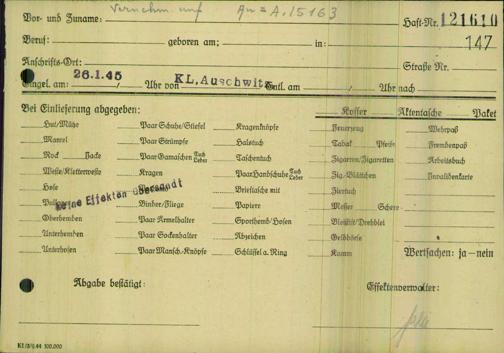 Vor- und Zuname: Haft-Nr. 121610
147
Beruf: geboren am: in:
Anschrifts-Ort: Straße Nr.
Eingel. am: 26.1.45 Uhr von KL. Auschwitz Entl. am Uhr nach
Bei Einlieferung abgegeben: Koffer Aktentasche Paket
Hut/Mütze Paar Schuhe/Stiefel Kragenknöpfe Feuerzeug Wehrpaß
Mantel Paar Strümpfe Halstuch Tabak Pfeife Fremdenpaß
Rock Jacke Paar Gamaschen Tuch Leder Taschentuch Zigarren/Zigaretten Arbeitsbuch
Weste/Kletterweste Kragen Paar Handschuhe Tuch Leder Zig.-Blättchen Invalidenkarte
Hose Brieftasche mit Ziertuch
keine Effekten übersandt
Binder/Fliege Papiere Messer Schere
Oberhemden Paar Ärmelhalter Sporthemd/Hosen Bleistift/Drehblei
Unterhemden Paar Sockenhalter Abzeichen Geldbörse
Unterhosen Paar Mansch.-Knöpfe Schlüssel a. Ring Kamm Wertsachen: ja – nein
Abgabe bestätigt: Effektenverwalter:
100.000